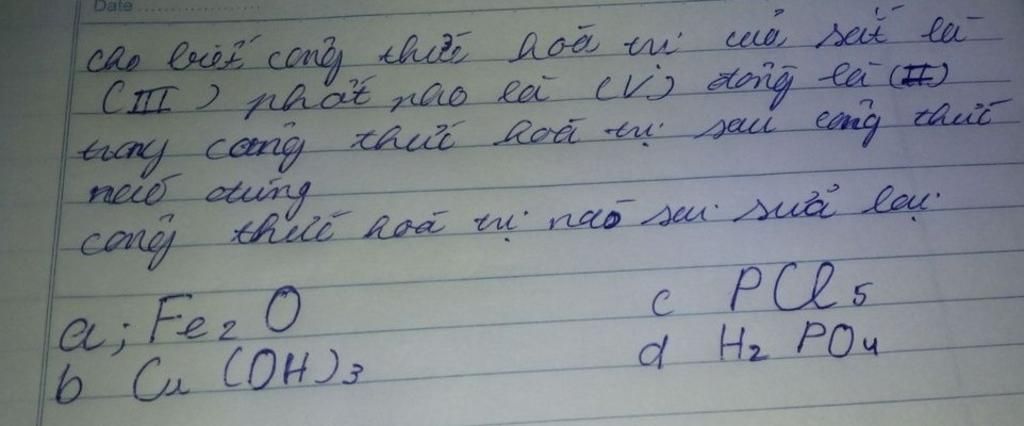 Date
cho biết công thức hoá trị của sắt là
(III) phất nào là (V) đồng là (II)
trong công thức hoá trị sau công thức
nào đúng
công thức hoá trị nào sai sửa lại.
a; Fe₂O
c PCl₅
b Cu(OH)₃
d H₂PO₄